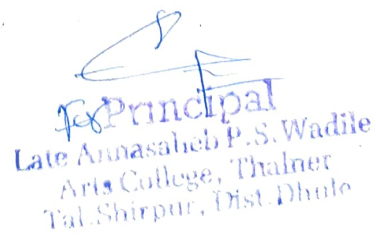 For Principal
Late Annasaheb P.S.Wadile
Arts College, Thalner
Tal.Shirpur, Dist.Dhule